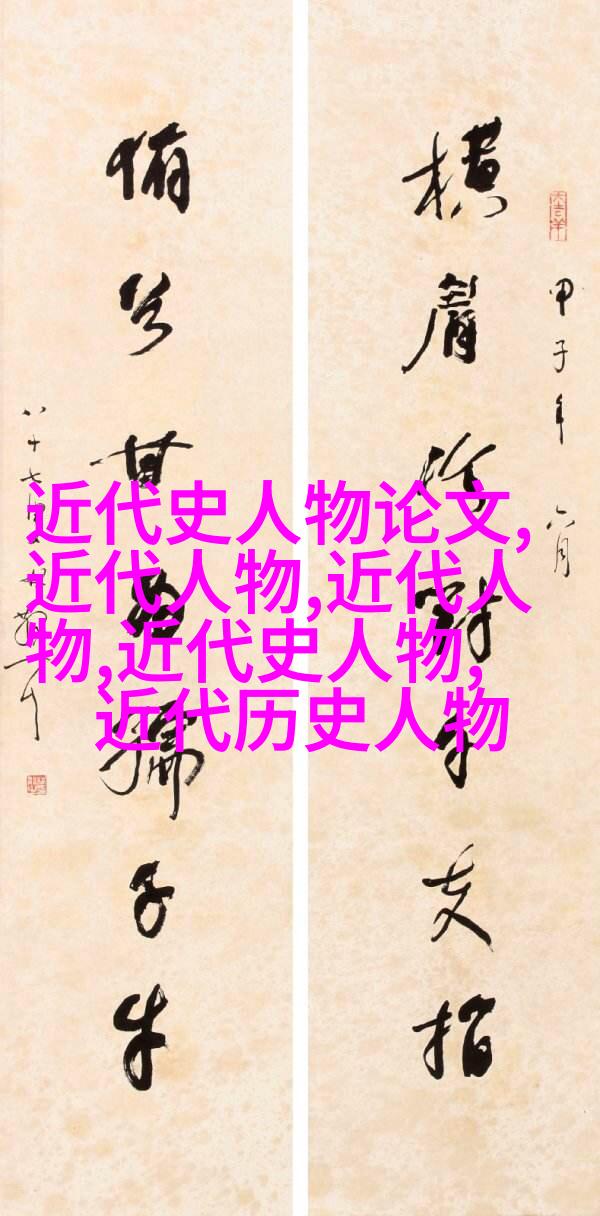 近代史人物论文,
近代人物,近代人
物,近代史人物,
近代历史人物
大吉羊
甲子年 六月
横眉冷對千夫指
俯首甘為孺子牛
八十七